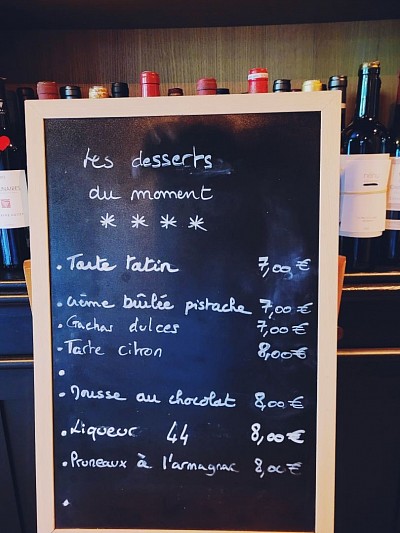 Les desserts
du moment
* * * *
. Tarte Tatin 7,00 €
. Crème bûlée pistache 7,00 €
. Gachas dulces 7,00 €
. Tarte citron 8,00 €
.
. Mousse au chocolat 8,00 €
. Liqueur 44 8,00 €
. Pruneaux à l'armagnac 8,00 €
.